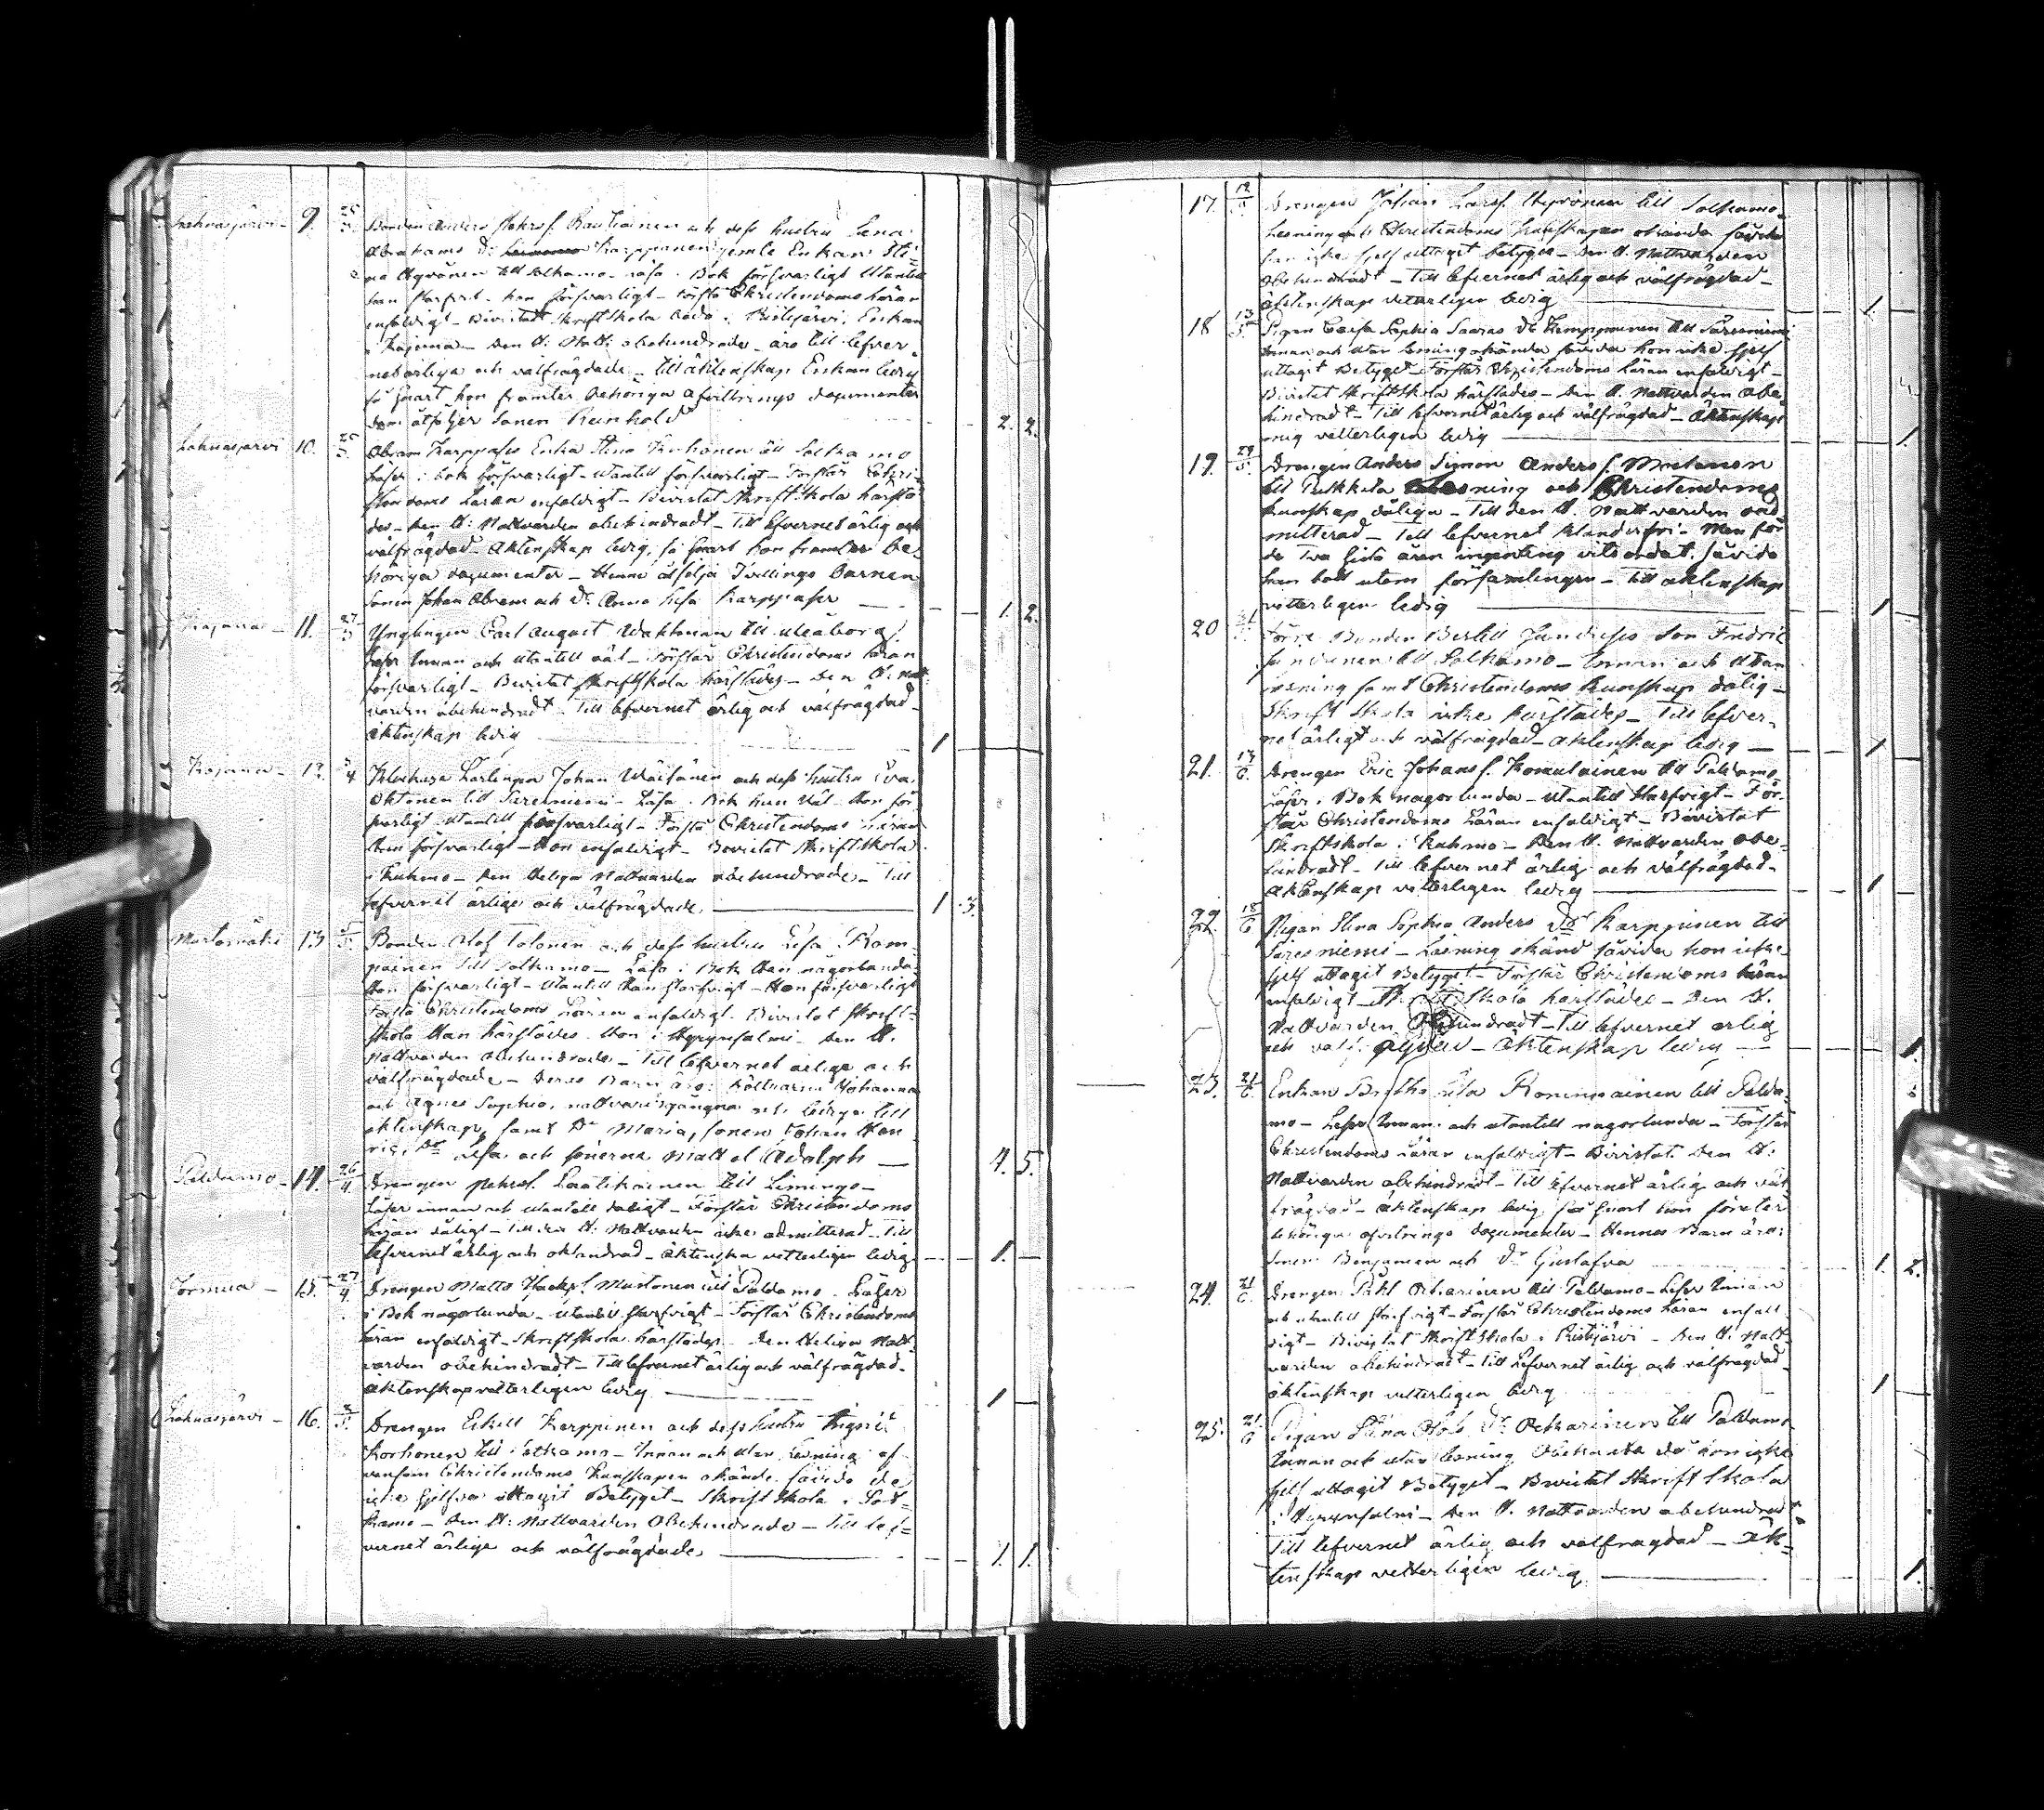 Lahnasjärvi - 9. 25/3. Bonden Anders Pehrs. Rautiainen och dess hustru Lena
Abrahams Dr Karppanen jemte Enkan Sti-
na Hyvönen till Sotkamo. Läsa i Bok försvarligt Utantill
han hon försvarligt - Förstå Christendoms läran
enfaldigt - Bivistat Skriftskola båda i Ristijärvi, Enkan
i Kajana - Den H. Nattv. obehindrade - äro till lefver-
net ärliga och välfrägdade - till äktenskap Enkan ledig
så snart hon framter behöriga afvittrings documenter
dem åtföljer Sonen Reinhold 2. 2.
Lahnasjärvi 10. 25/3. Abram Karppases Enka Stina Korhonen till Sotkamo
Läser i bok försvarligt - utantill försvarligt - Förstår Chri-
stendoms Läran enfaldigt - Bivistat Skriftskola härstä-
des - den H. Nattvarden obehindradt - Till lefvernet ärlig och
välfrägdad - Äktenskap ledig, så snart hon framter be-
höriga documenter - Henne åtfölja Tvillings Barnen
Sonen Johan Abram och Dr Anna Lisa Karppases - 1. 2.
Kajana - 11. 27/3 Ynglingen Carl August Wahlman till Uleåborg.
Läser Innan och utantill väl - Förstår Christendoms läran
försvarligt - Bivistat Skriftskola härstädes - Den H. Natt-
varden obehindradt - Till lefvernet ärlig och välfrägdad -
Äktenskap ledig - 1
Kajana - 12. 5/4 Klockare Lärlingen Johan Wäisänen och dess hustru Eva
till Säresniemi - Läsa i Bok han väl - Hon för-
svarligt utantill försvarligt - Förstå Christendoms läran
Han försvarligt - Hon enfaldigt - Bevistat Skriftskola
i Kuhmo - den Heliga Nattvarden obehindrade - Till
lefvernet ärliga och välfrägdade. - 1 3.
13 Bonden Olof Tolonen och dess hustru Lisa Kom-
painen till Sotkamo - Läsa i Bok Han någorlunda
Hon försvarligt - Utantill Han Hon försvarligt
Förstå Christendoms Läran enfaldigt. Bivistat Skrift-
skola Han härstädes. Hon i Hyrynsalmi - Den H.
Nattvarden obehindrade - Till lefvernet ärliga och
välfrägdade - Deras Barn äro: Johanna
och Agnes Sophia, nattvardsgångna och lediga till
äktenskap, samt Dr Maria, sonen Johan Hen-
ric, Dr Lisa och sönerna Matts et Adolph - 4. 5.
Paldamo - 14. 26/4 Drengen Pehrs. Laatikainen till Limingo -
Läser innan och utantill dåligt - Förstår Christendoms
läran dåligt - Till den H. Nattvarden icke admitterad - Till
lefvernet ärlig och oklandrad - äktenskap vetterligen ledig - 1. -
Jormua - 15. 27/4. Drengen Matts Mustonen till Paldamo - Läser
i Bok någorlunda - Utantill - Förstår Christendoms
läran enfaldigt - Skriftskola härstädes - Den Heliga Natt-
varden obehindradt - Till lefvernet ärlig och välfrägdad -
Äktenskap vetterligen ledig. - 1 -
Lahnasjärvi - 16. Drengen Eskill Karppinen och dess hustru
Korhonen till Sotkamo - Innan och utan Läsning äf-
vensom Christendoms Kunskapen okände såvida de
icke sjelfva uttagit Betyget - Skriftskola i Sot-
kamo - Den H. Nattvarden Obehindrade - Till lef-
vernet ärliga och välfrägdade. - 1. 1.
17. Drengen Johan Lars. Hyvönen till Sotkamo -
Läsning och Christendoms kunskapen okända såvida
han icke sjelf uttagit betyget - Den H. Nattvarden
Obehindradt - Till lefvernet ärlig och välfrägdad -
Äktenskap vetterligen ledig - 1.
18 13/5 Pigan Caisa Sophia Dr Kemppainen till Säresniemi
Innan och utan läsning okända såvida hon icke sjelf
uttagit Betyget - Förstår Christendoms läran enfaldigt -
Bivistat Skriftskola härstädes - Den H. Nattvarden obe-
hindradt - Till lefvernet ärlig och välfrägdad - Äktenskap
vetterligen ledig - 1.
19. 29/5. Drengen Anders Simon Anders s.
till Pulkkila Läsning och Christendoms
kunskap dåliga - Till den H. Nattvarden oad-
mitterad - Till lefvernet klanderfri - Men för
de Två sista åren ingenting vitsordat, såvida
han bott utom församlingen - Till äktenskap
vetterligen ledig - 1
20 31/5 Förre Bonden Bertill son Fredric
till Sotkamo - Innan och utan
läsning samt Christendoms kunskap dålig -
Skriftskola icke härstädes - Till lefver-
net ärligt och välfrägdad - Äktenskap ledig - 1
21. 17/6. Drengen Eric Johans s. Komulainen till Paldamo
Läser i Bok någorlunda - Utantill - För-
står Christendoms Läran enfaldigt - Bivistat
Skriftskola i Kuhmo - Den H. Nattvarden obe-
hindradt - Till lefvernet ärlig och välfrägdad -
Äktenskap vetterligen ledig - 1
22. 18/6 Pigan Stina Sophia Anders Dr Karppinen till
Säresniemi - Läsning okänd såvida hon icke
sjelf uttagit Betyget - Förstår Christendoms läran
enfaldigt - Skriftskola härstädes - Den H.
Nattvarden Obehindradt - Till lefvernet ärlig
och - Äktenskap ledig - 1.
23. 21/6. Enkan Brytha Lisa till Palda-
mo - Läser Innan och utantill någorlunda - Förstår
Christendoms Läran enfaldigt - Bivistat Den H.
Nattvarden obehindradt - Till lefvernet ärlig och väl-
frägdad - Äktenskap ledig, så snart hon företer
behöriga afvittrings documenter - Hennes Barn äro:
Sonen Benjamin och Dr Gustafva 1. 2.
24. 21/6. Drengen Påhl till Paldamo - Läser Innan
och utantill - Förstår Christendoms läran enfal-
digt - Bivistat Skriftskola i Ristijärvi - Den H. Natt-
varden obehindradt - Till Lefvernet ärlig och välfrägdad -
äktenskap vetterligen ledig 1
25. 21/6 Pigan Stina Ols. Dr till Paldamo
Innan och utan läsning Obekanta då hon icke
sjelf uttagit Betyget - Bivistat Skriftskola
i Hyrynsalmi - Den H. Nattvarden obehindradt -
Till lefvernet ärlig och välfrägdad - Äk-
tenskap vetterligen ledig. - 1.